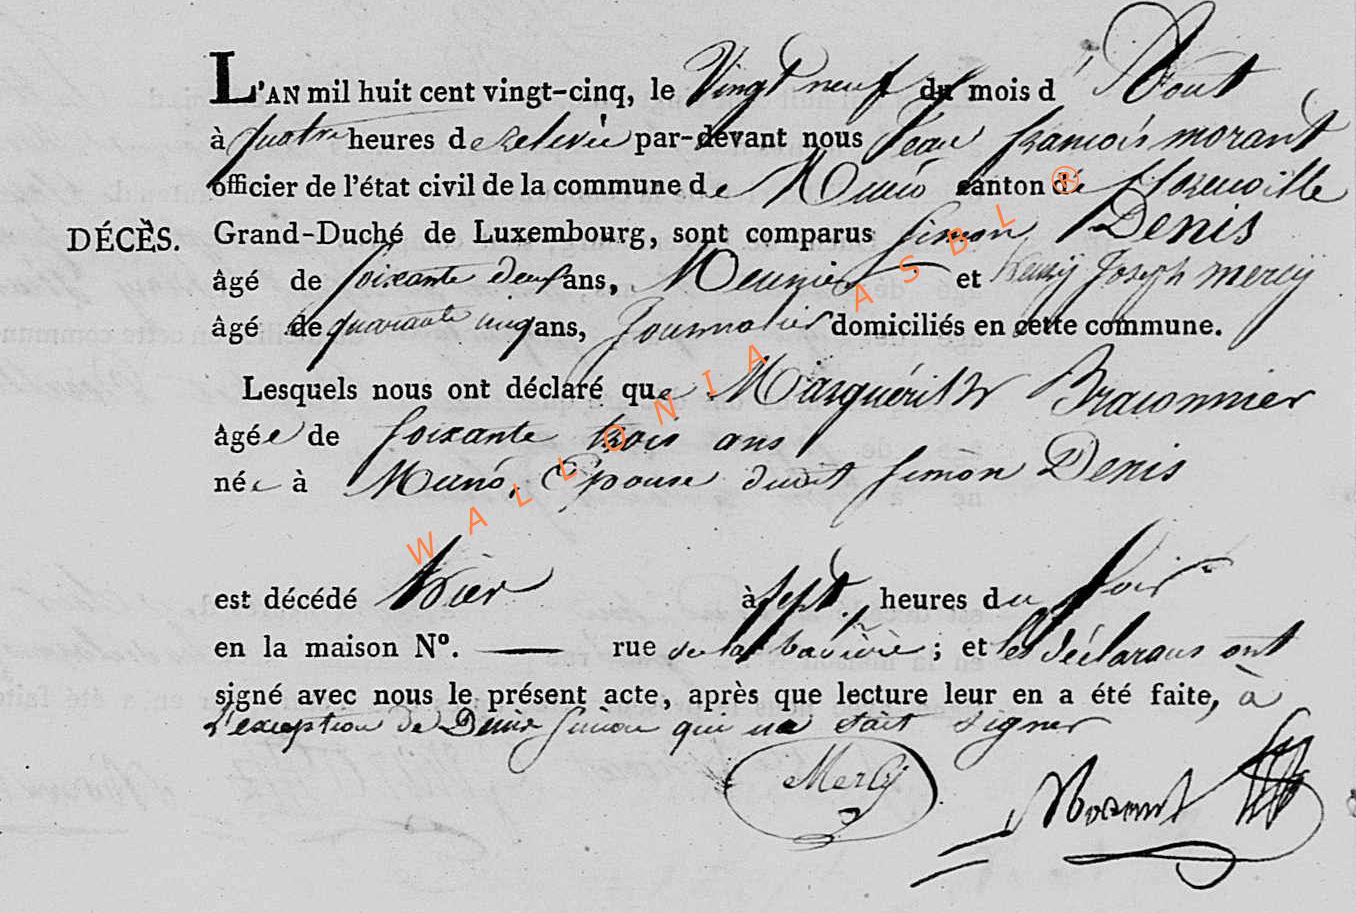 L'AN mil huit cent vingt-cinq, le Vingt neuf du mois d'Aout
à quatre heures de Relevée par-devant nous Jean françois morant
officier de l'état civil de la commune de Muno canton de florenville
DÉCÈS. Grand-Duché de Luxembourg, sont comparus Simon Denis
âgé de soixante deux ans, Meunier et henry Joseph mercy
âgé de quarante cinq ans, Journalier domiciliés en cette commune.
Lesquels nous ont déclaré que Marguéritte Braconnier
âgée de soixante trois ans
née à Muno, Epouse dudit simon Denis
est décédé hier à sept heures du soir
en la maison N°. — rue de la ; et les déclarans ont
signé avec nous le présent acte, après que lecture leur en a été faite, à
L'exception de Denis simon qui ne sait signer
Mercy
Morant
WALLONIA ASBL ®